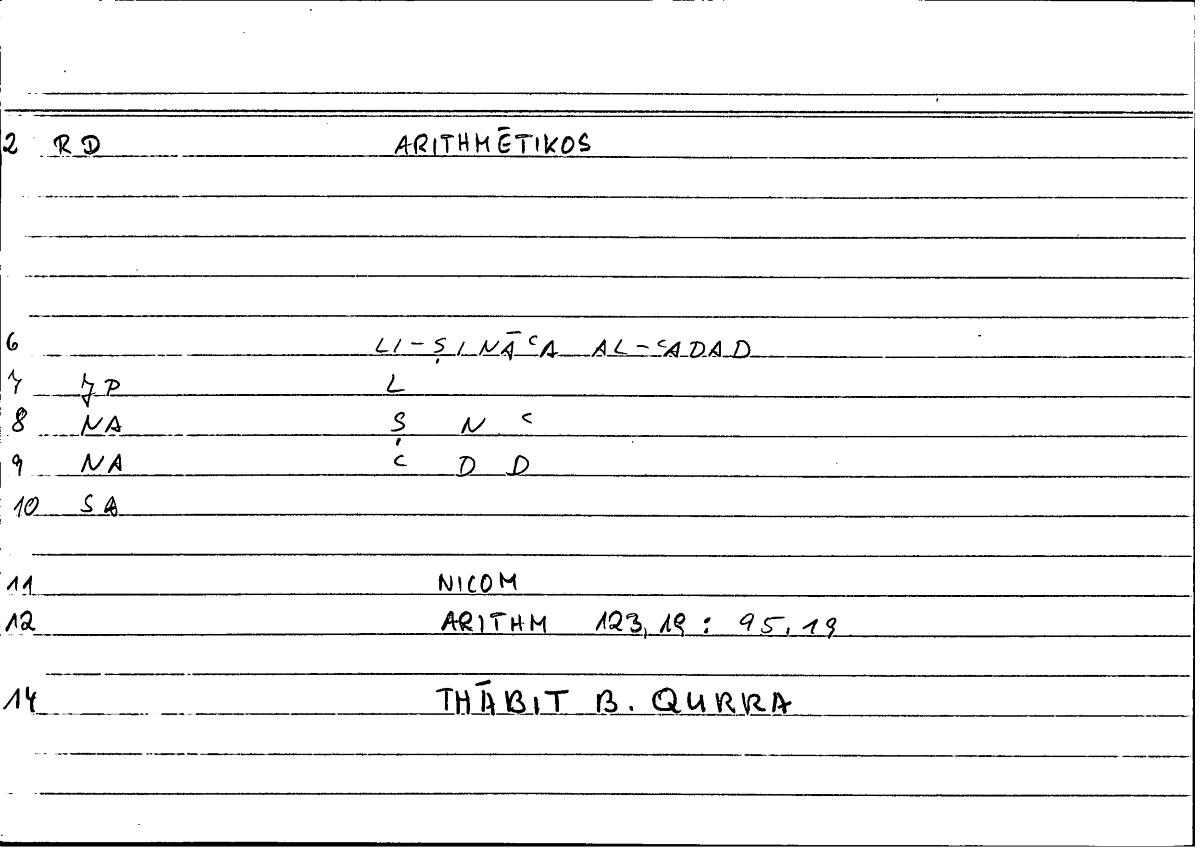 2 RD ARITHMĒTIKOS
6 LI-ṢINĀʿA AL-ʿADAD
7 JP L
8 NA Ṣ N ʿ
9 NA ʿ D D
10 SA
11 NICOM
12 ARITHM 123,19 : 95,19
14 THĀBIT B. QURRA